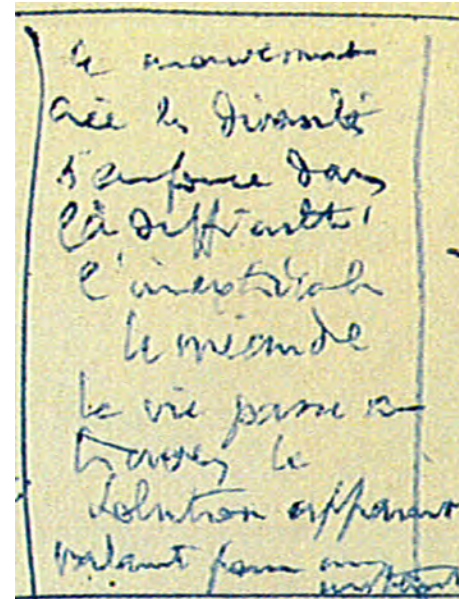 le mouvement
crée la diversité
s'enfonce dans
la difficulté
l'inextricable
le méandre
la vie passe
trouver la
solution
valant pour un
instant